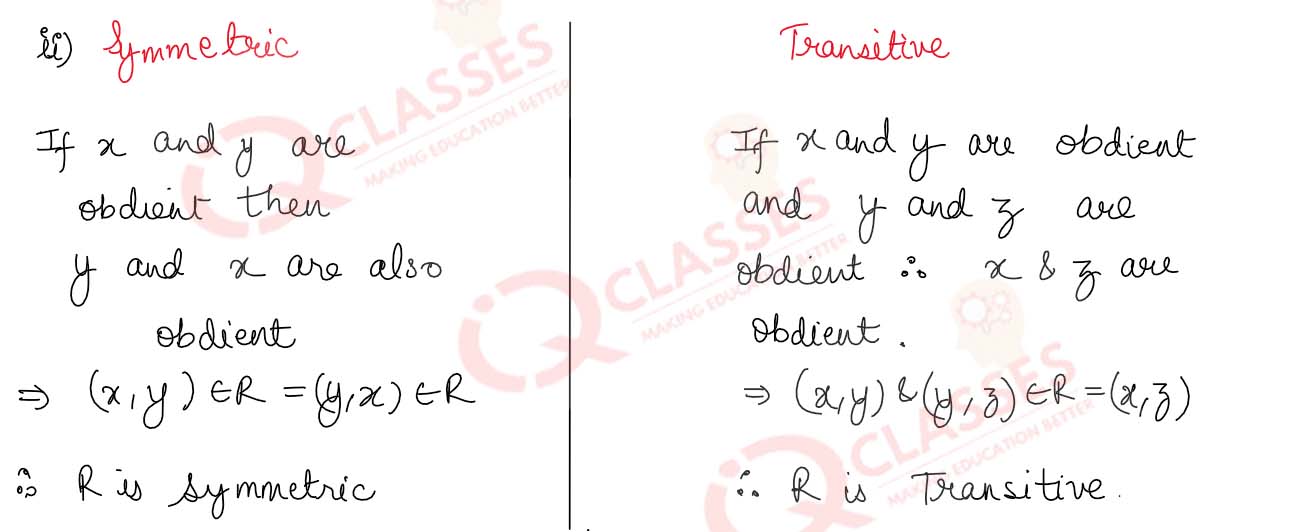 ii) Symmetric
If x and y are
obdient then
y and x are also
obdient
⇒ (x, y) ∈R = (y, x) ∈R
∴ R is symmetric
Transitive
If x and y are obdient
and y and z are
obdient ∴ x & z are
obdient.
⇒ (x,y) & (y, z) ∈R = (x, z)
∴ R is Transitive.
IQ CLASSES
MAKING EDUCATION BETTER
IQ CLASSES
MAKING EDUCATION BETTER
IQ CLASSES
MAKING EDUCATION BETTER